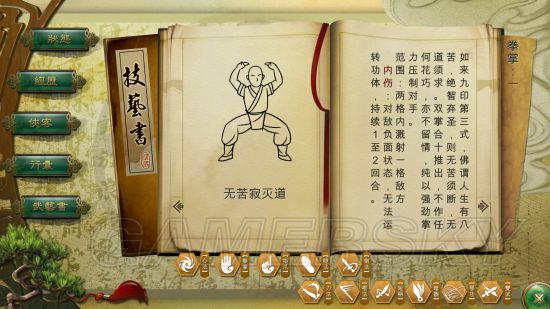 狀態
經歷
俠客
行囊
武藝書
技藝書
无苦寂灭道
拳掌
一
如来九印第三式，佛谓人生有八
苦，绝智弃圣，则无苦须断，无
道须求。双掌合十推出，不作任
何花巧，亦不留情，纯以强劲掌
力压制对手。
范围：两格内溅射一格敌方
内伤：对敌负面状态，无法运
转功体，持续1至2回合。
GAMERSKY